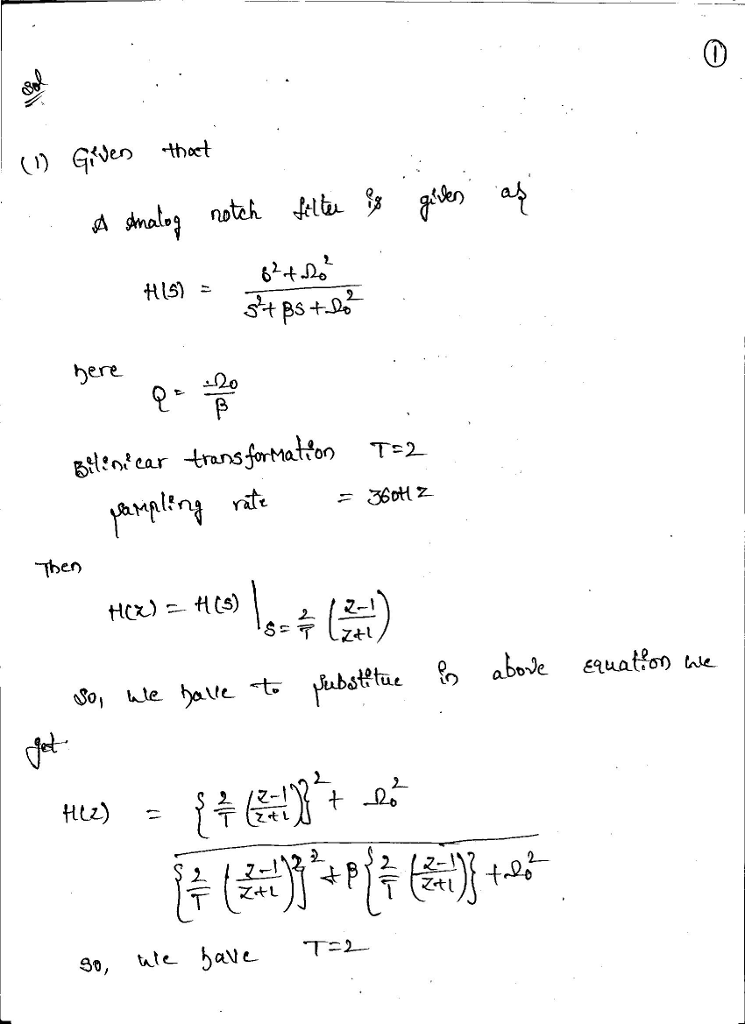 ①
Sol
(1) Given that
A Analog notch filter is given as
H(S) = (s² + Ω₀²) / (s² + βs + Ω₀²)
here
Q = Ω₀ / β
Bilinicar transformation T=2
sampling rate = 360HZ
Then
H(z) = H(S) |ₛ₌ 2/T ((z-1)/(z+1))
So, we have to substitue in above equation we
get
H(z) = {2/T ((z-1)/(z+1))}² + Ω₀²
{2/T ((z-1)/(z+1))}² + β{2/T ((z-1)/(z+1))} + Ω₀²
So, we have T=2